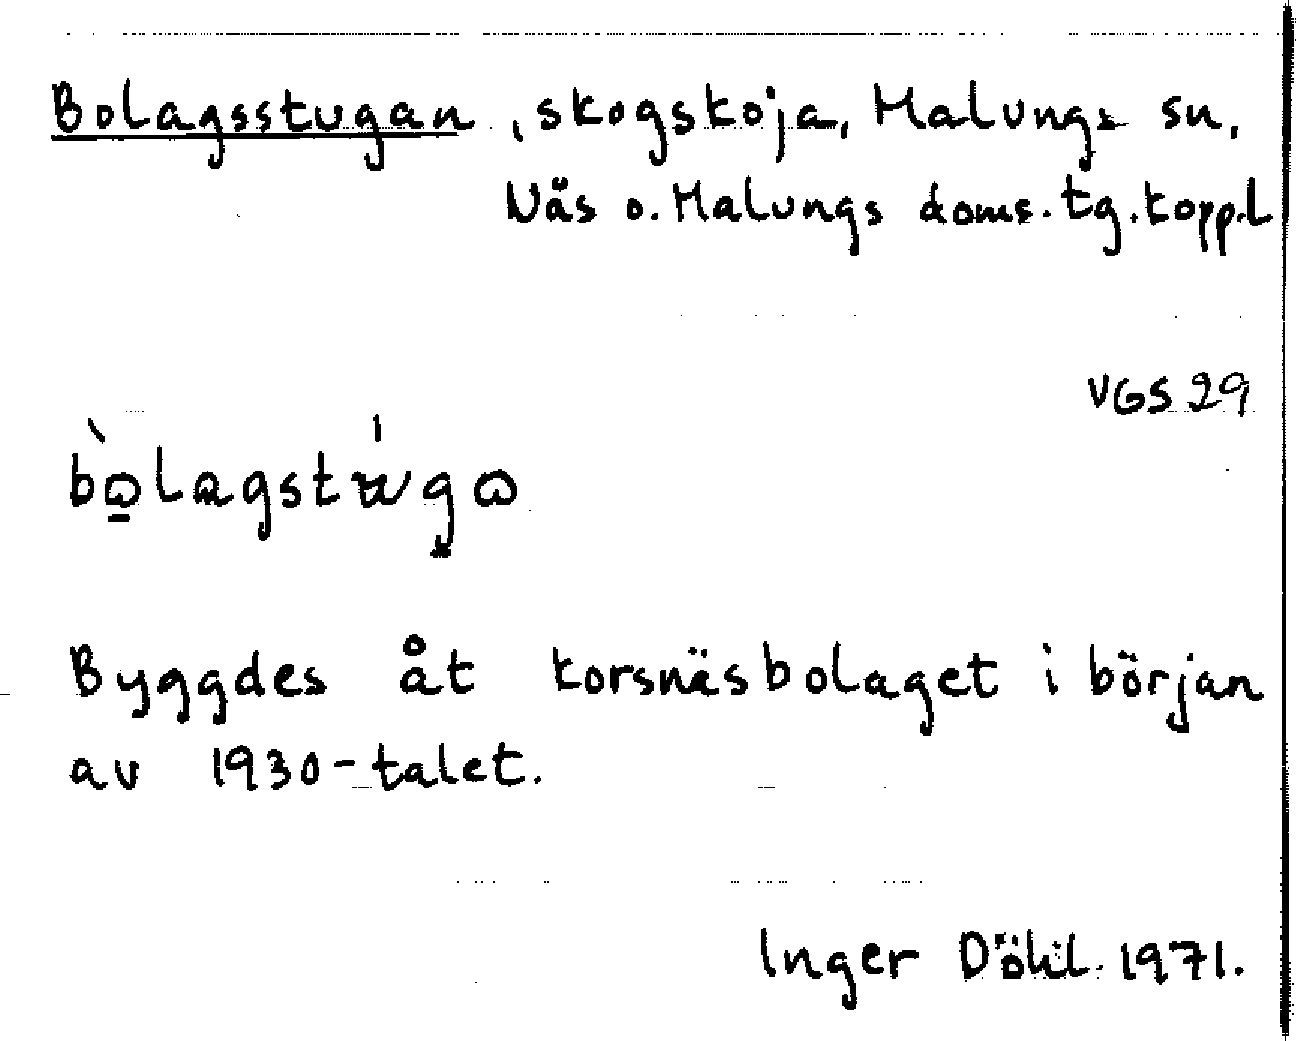 Bolagsstugan, skogskoja, Malungs sn,
Näs o. Malungs doms. tg. koppl
VGS 29
Byggdes åt korsnäsbolaget i början
av 1930-talet.
Inger Döhl 1971.